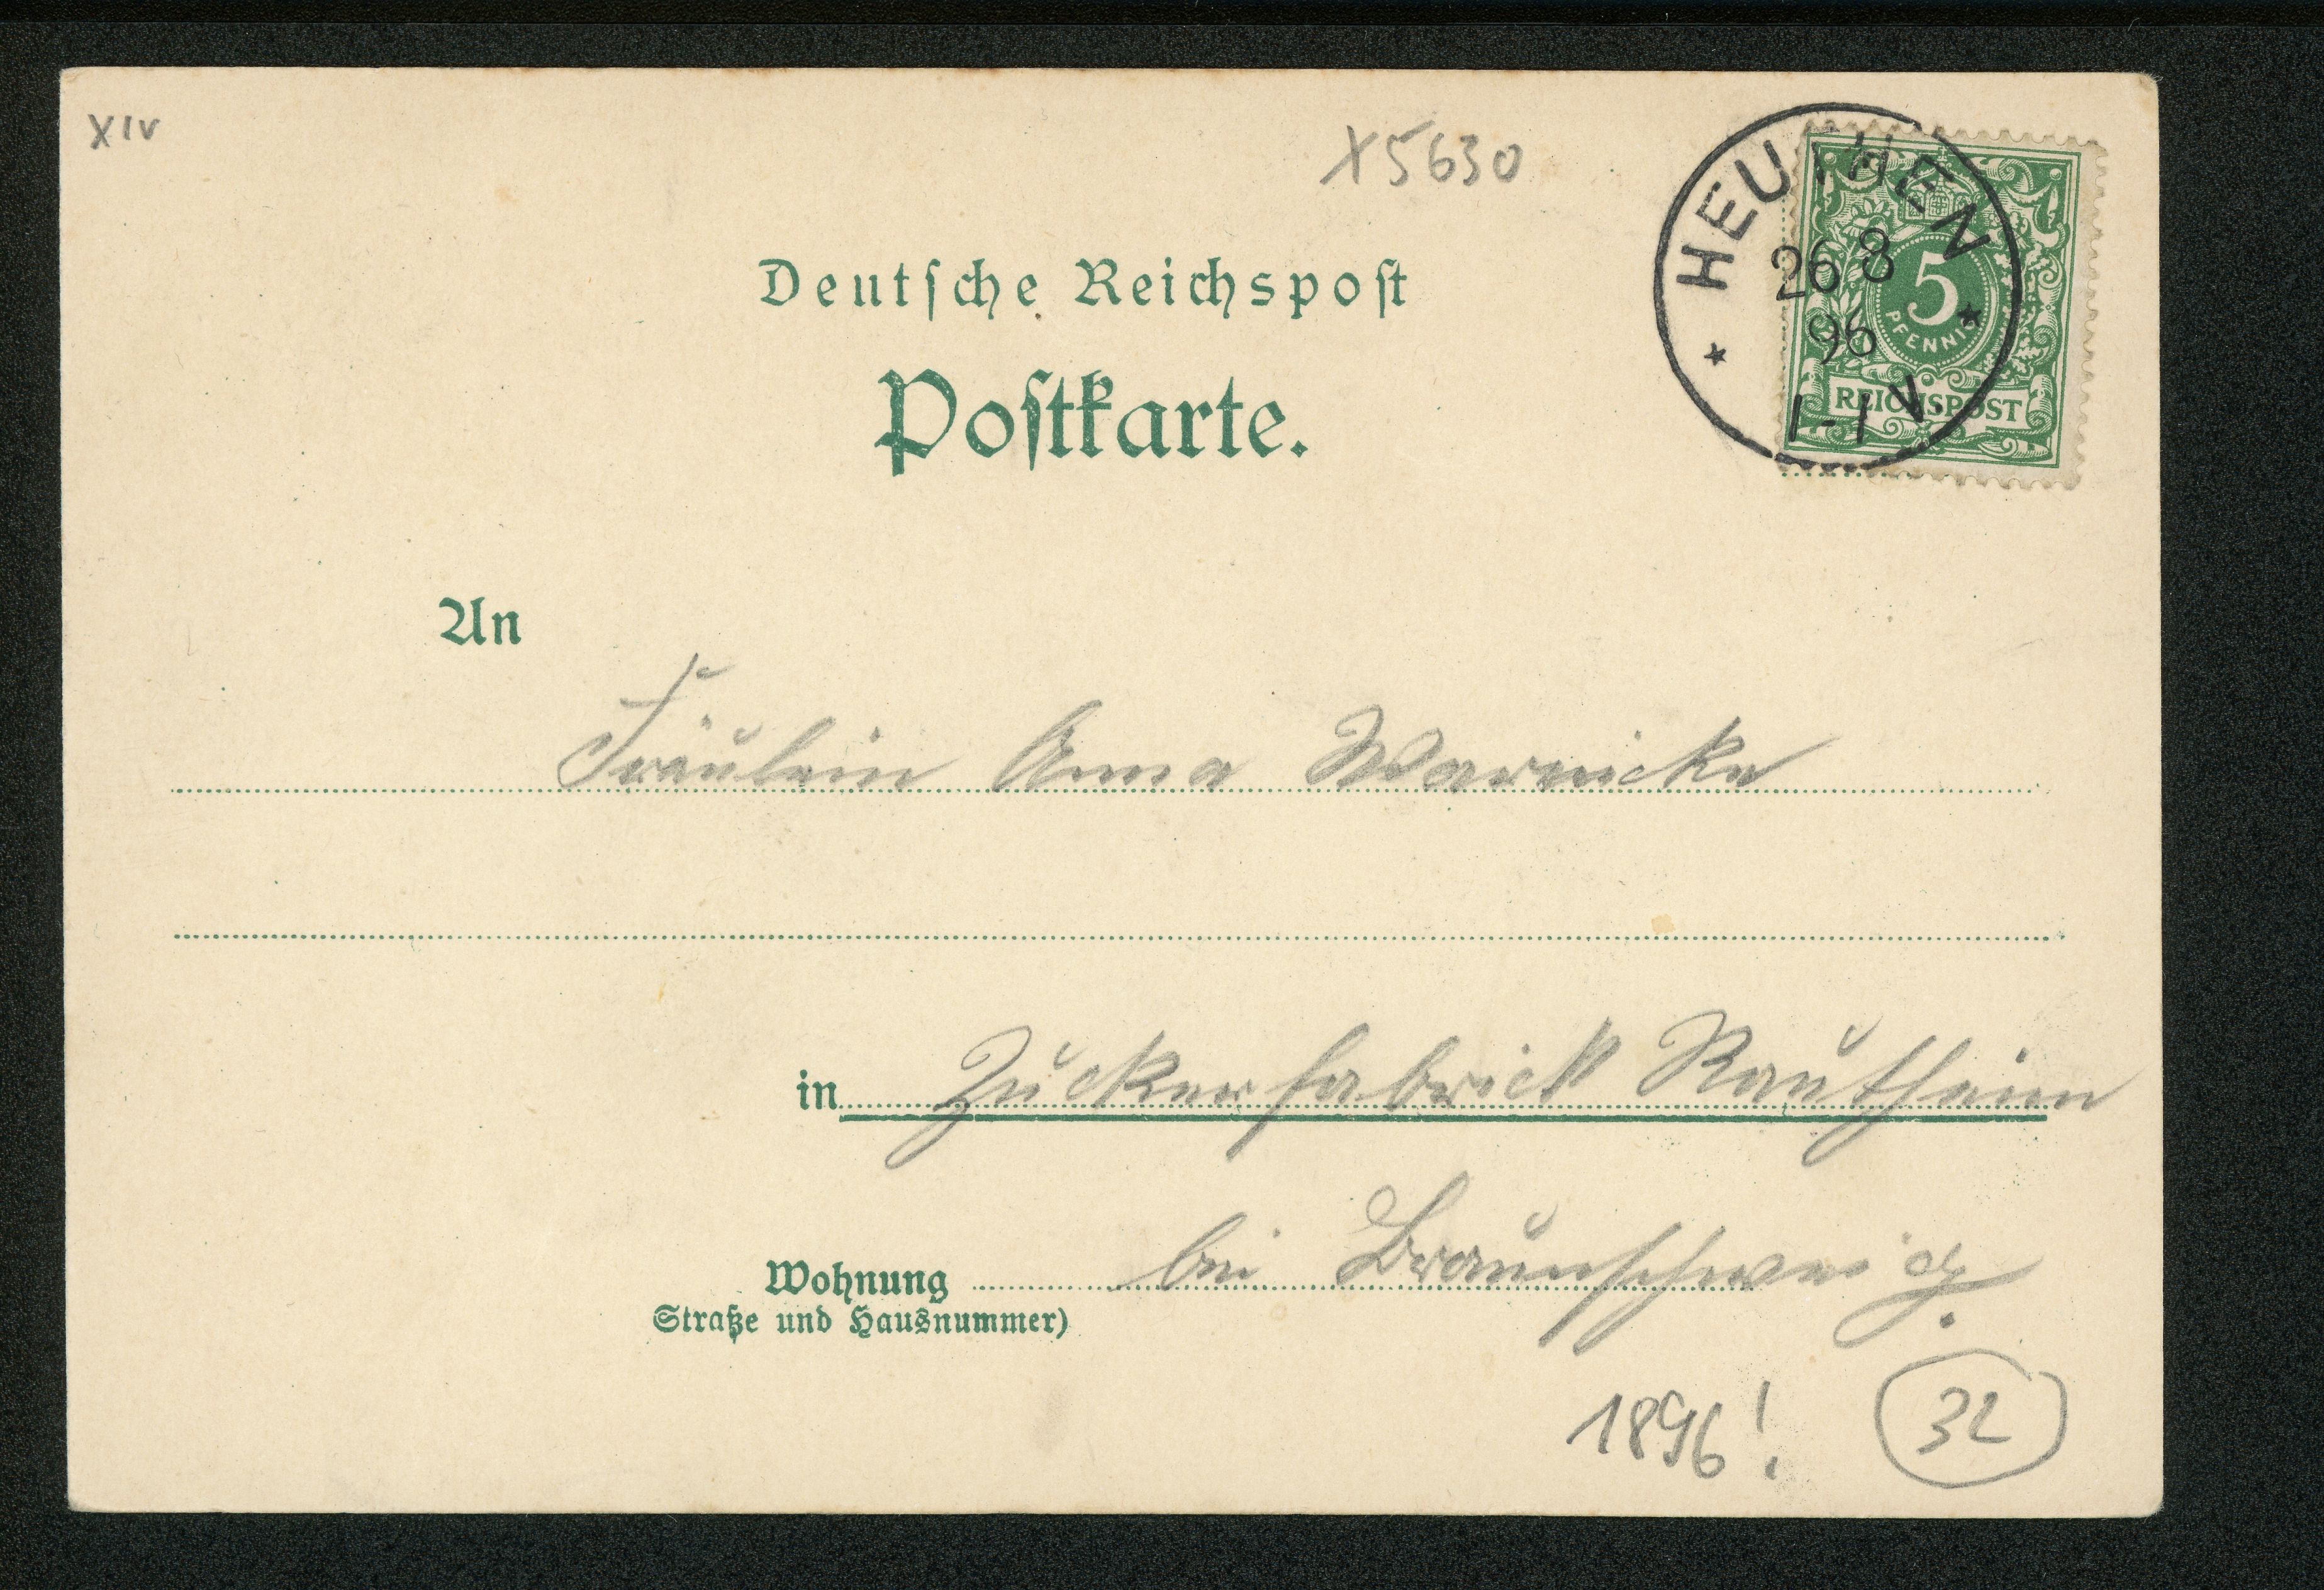 XIV
X5630
HEUTHEN
26 8
96
1-1 V.
5
PFENNIG
REICHSPOST
Deutſche Reichspoſt
Poſtkarte.
An
Fräulein Anna Warnicke
in Zuckerfabrick Rautheim
Wohnung bei Braunschweig.
Straße und Hausnummer)
1896!
32